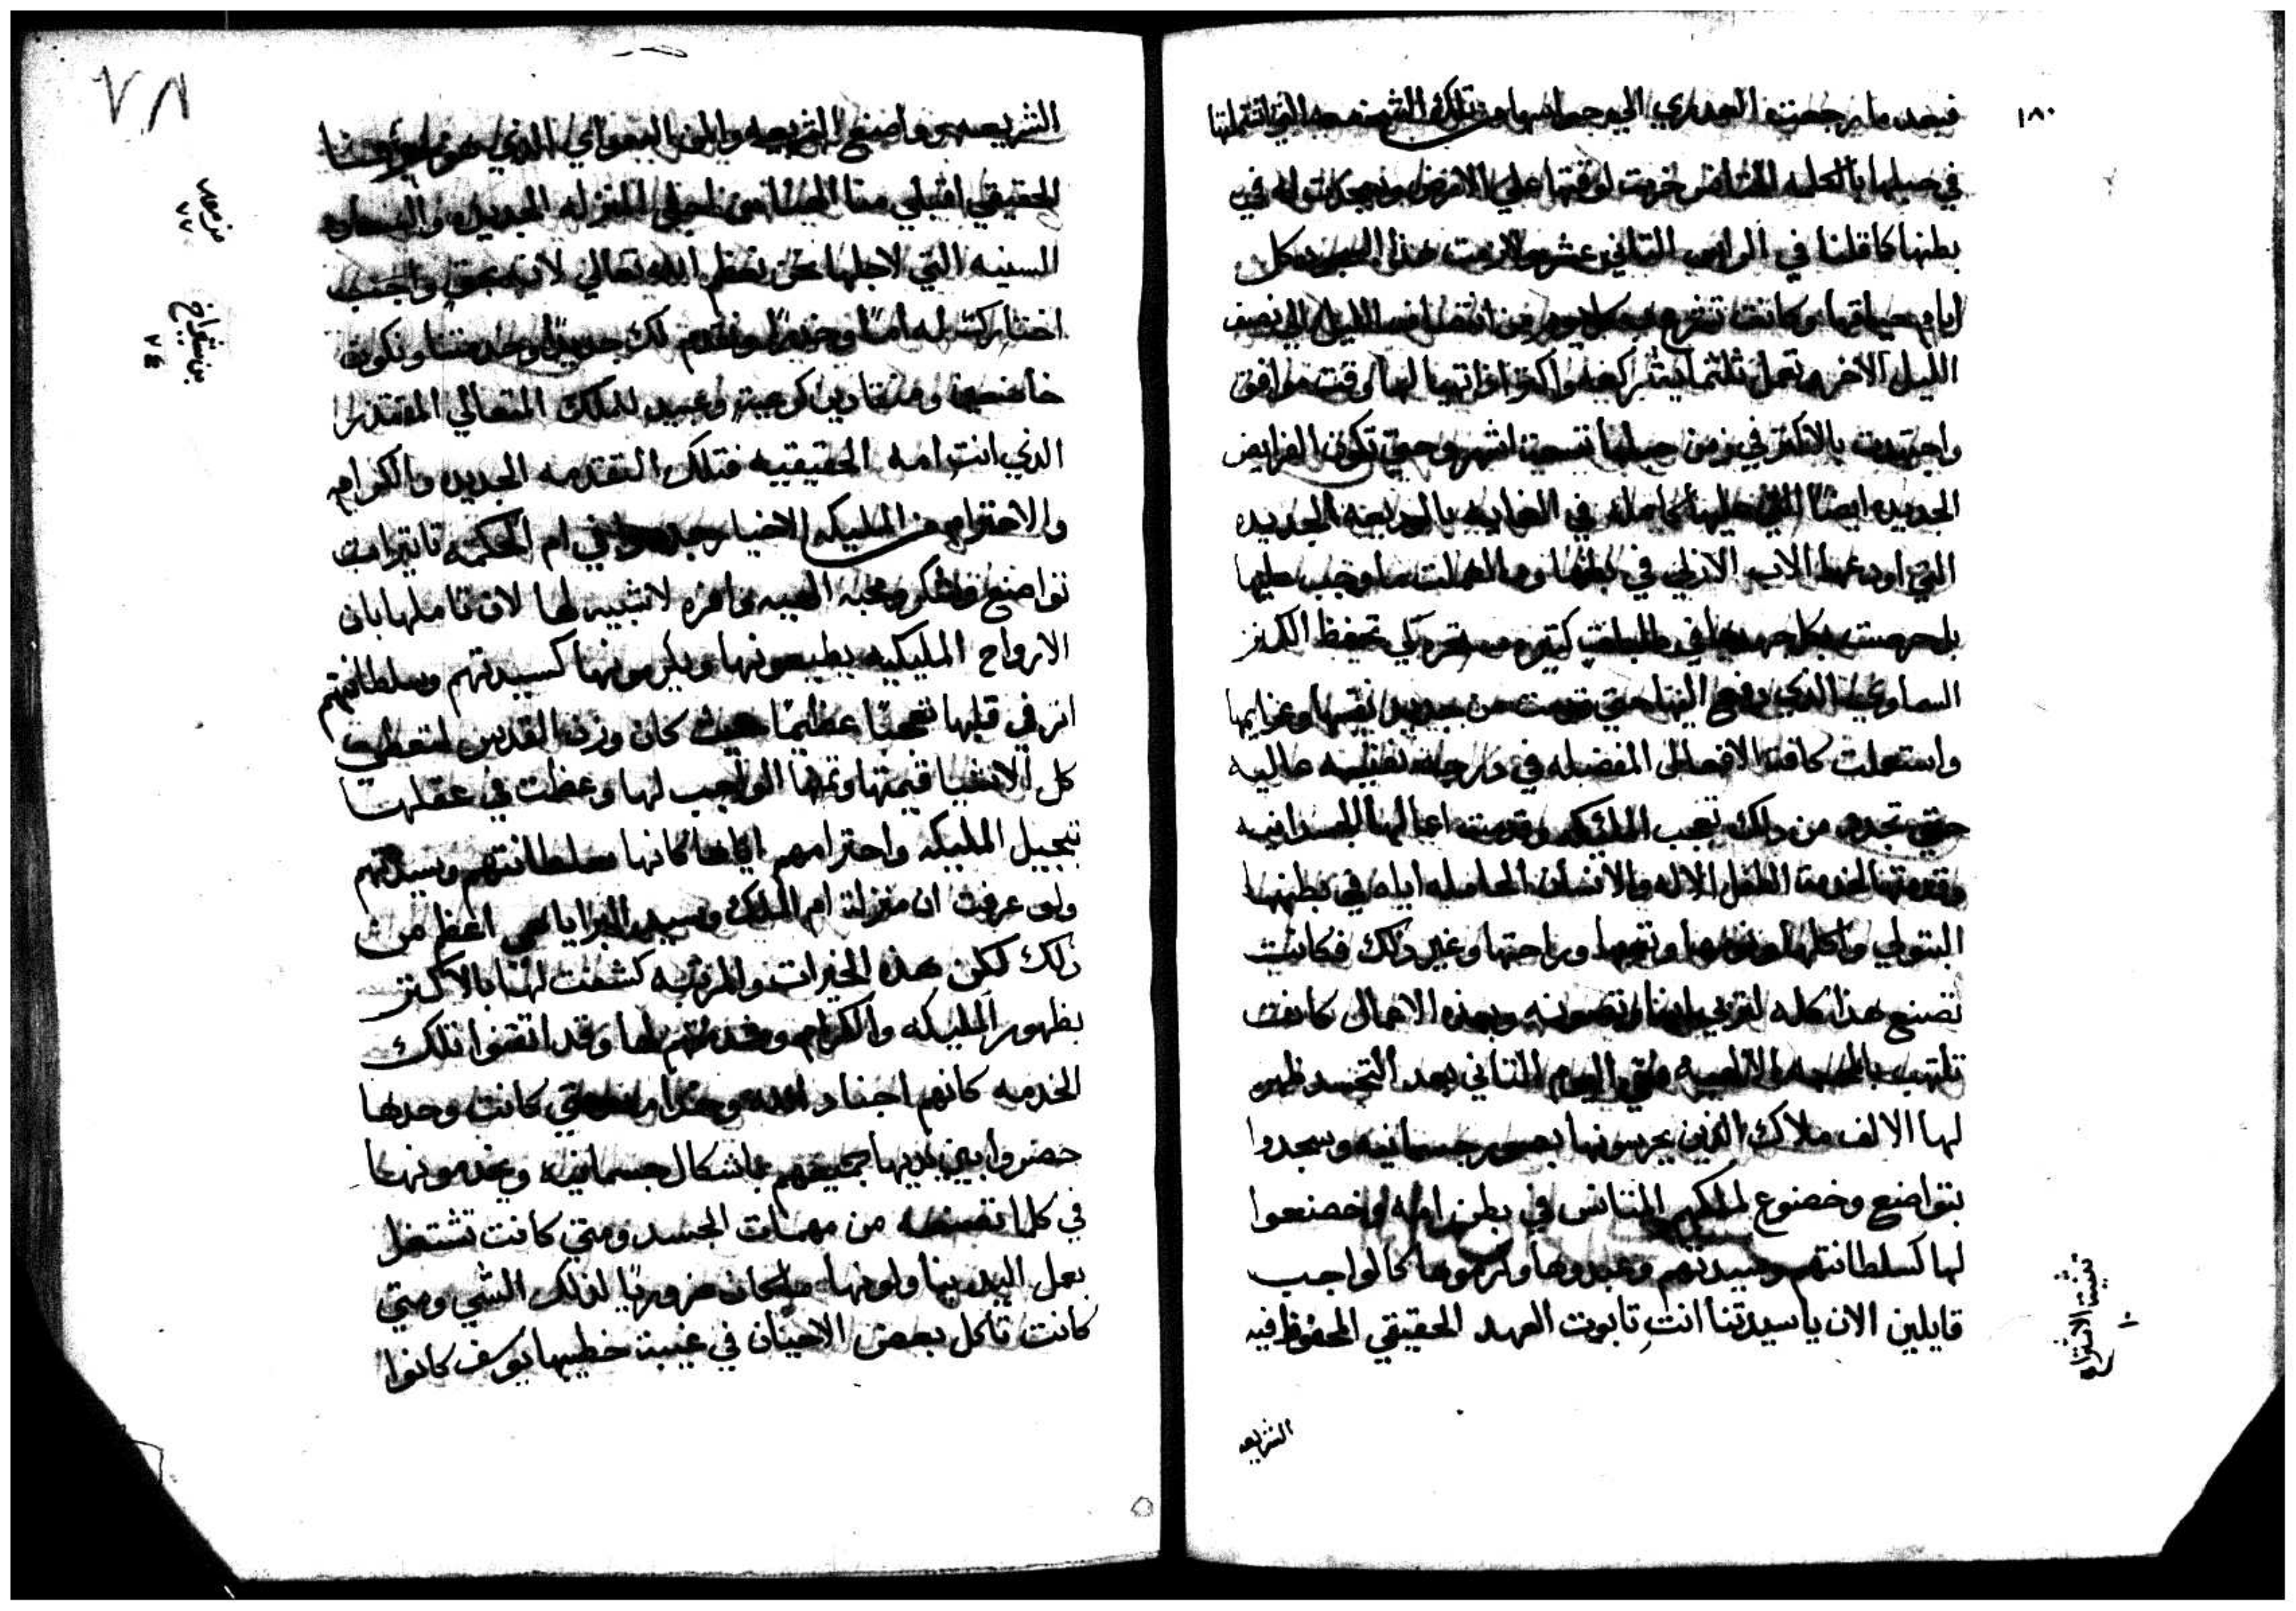 ١٨٠
فبعد ما رجعت العدري الي حواسها من تلك التي اشتملتها
في حبلها بالكلمه المتانس خرت لوقتها علي الارض وسجدت له في
بطنها كما قلنا في الراس التاني عشر ولازمت هذا السجود كل
ايام حياتها وكانت تشرع به كل يوم من انتصاف الليل الي نصف
الليل الاخر وتعمل ثلثماية ركعه واكتر اذا تهيا لها وقت موافق
واجتهدت بالاكتر في زمن حبلها تسعة اشهر وحتي تكون الفرايض
الجديده ايضا التي عليها كامله في الغايه بالوديعه الجديده
التي اودعها الاب الازلي في بطنها وما اهملت ما وجب عليها
بل حرصت بكل جهدها في طلبات كتيره كي تحفظ الكنز
السماوي الذي دفع اليها حتي قدمت من جديد نفسها وعزايمها
واستعملت كافة الافعال المفضله في درجه نفيسه عاليه
حتي تجدد من ذلك تعجب المليكه وقدمت اعمالها الجسدانيه
وقدمتها لخدمة الطفل الاله والانسان الحامله اياه في بطنها
البتولي واكلها ونومها وتعبها وراحتها وغير ذلك فكانت
تصنع هذا كله لتربي ابنها وتصونه وبهذه الاعمال كانت
تلتهب بالمحبه الالهيه ففي اليوم التاني بعد التجسد ظهر
لها الالف ملاك الذين يحرسونها بصور جسمانيه وسجدوا
بتواضع وخضوع لملكهم المتانس في بطن امه وخضعوا
لها كسلطانتهم وسيدتهم ومجدوها وكرموها كالواجب
قايلين الان يا سيدتنا انتِ تابوت العهد الحقيقي المحفوظ فيه
تثنية الاشتراع
١٠
الشريعه
٧٨
الشريعه وواضع الشريعه والمن السماوي الذي هو خبزنا
الحقيقي اقبلي منا التهاني لاجل المنزله الجديده والسعاده
السنيه التي لاجلها نحن نعظم الله تعالي لانه بحق واجب
اختارك له امًا وخدرًا ونقدم لك جديدًا وخدمتنا ونكون
خاضعين ومنقادين كرعية وعبيد للملك المتعالي المقتدر
الذي انتِ امه الحقيقيه فتلك التقدمه الجديده والكرامه
والاحترام من المليكه الاخيار جددوا في ام الحكمه تاتيرات
تواضع وشكر ومحبه الهيه وافره لا شبيه لها لان تاملها بان
الارواح المليكيه يطيعونها ويكرمونها كسيدتهم وسلطانتهم
اثر في قلبها تعجبًا عظيمًا حيث كان وزن القدس لتعطي
كل الاشيا قيمتها وتمنها الواجب لها وعظمت في عقلها
تبجيل المليكه واحترامهم اياها كانها سلطانتهم وسيدتهم
ولو عرفت ان منزلة ام الملك وسيد البرايا هي اعظم من
ذلك لكن هذه الخيرات والمرتبه كشفت لها بالاكتر
بظهور المليكه والكرامه وخدمتهم لها وقد اتقنوا تلك
الخدمه كانهم اجناد الله وخدامه متي كانت وحدها
حضروا بين يديها جميعهم باشكال جسمانيه وخدمونها
في كل ما تصنعه من مهمات الجسد ومتي كانت تشتغل
بعمل اليد يناولونها ما كان ضروريًا لذلك الشي ومتي
كانت تاكل بعض الاحيان في غيبة خطيبها يوسف كانوا
مزمور
٧٧
بن سيراخ
٧٤